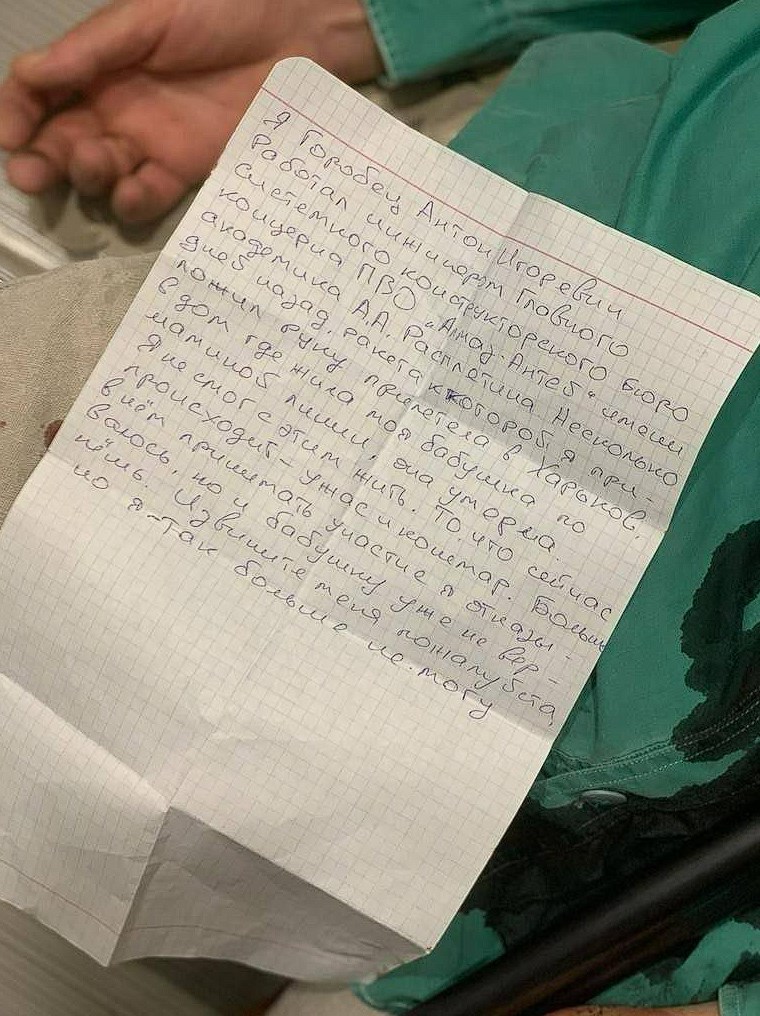 Я Горобец Антон Игоревич
Работал инжинером Главного
системного конструкторского бюро
концерна ПВО "Алмаз-Антей" имени
академика А.А. Расплетина. Несколько
дней назад, ракета к которой я при-
ложил руку прилетела в Харьков,
в дом где жила моя бабушка по
маминой линии, она умерла.
Я не смог с этим жить. То, что сейчас
происходит – ужас и кошмар. Больше
в нём принимать участие я отказы-
ваюсь, но и бабушку уже не вер-
нёшь. Извините меня пожалуйста,
но я – так больше не могу